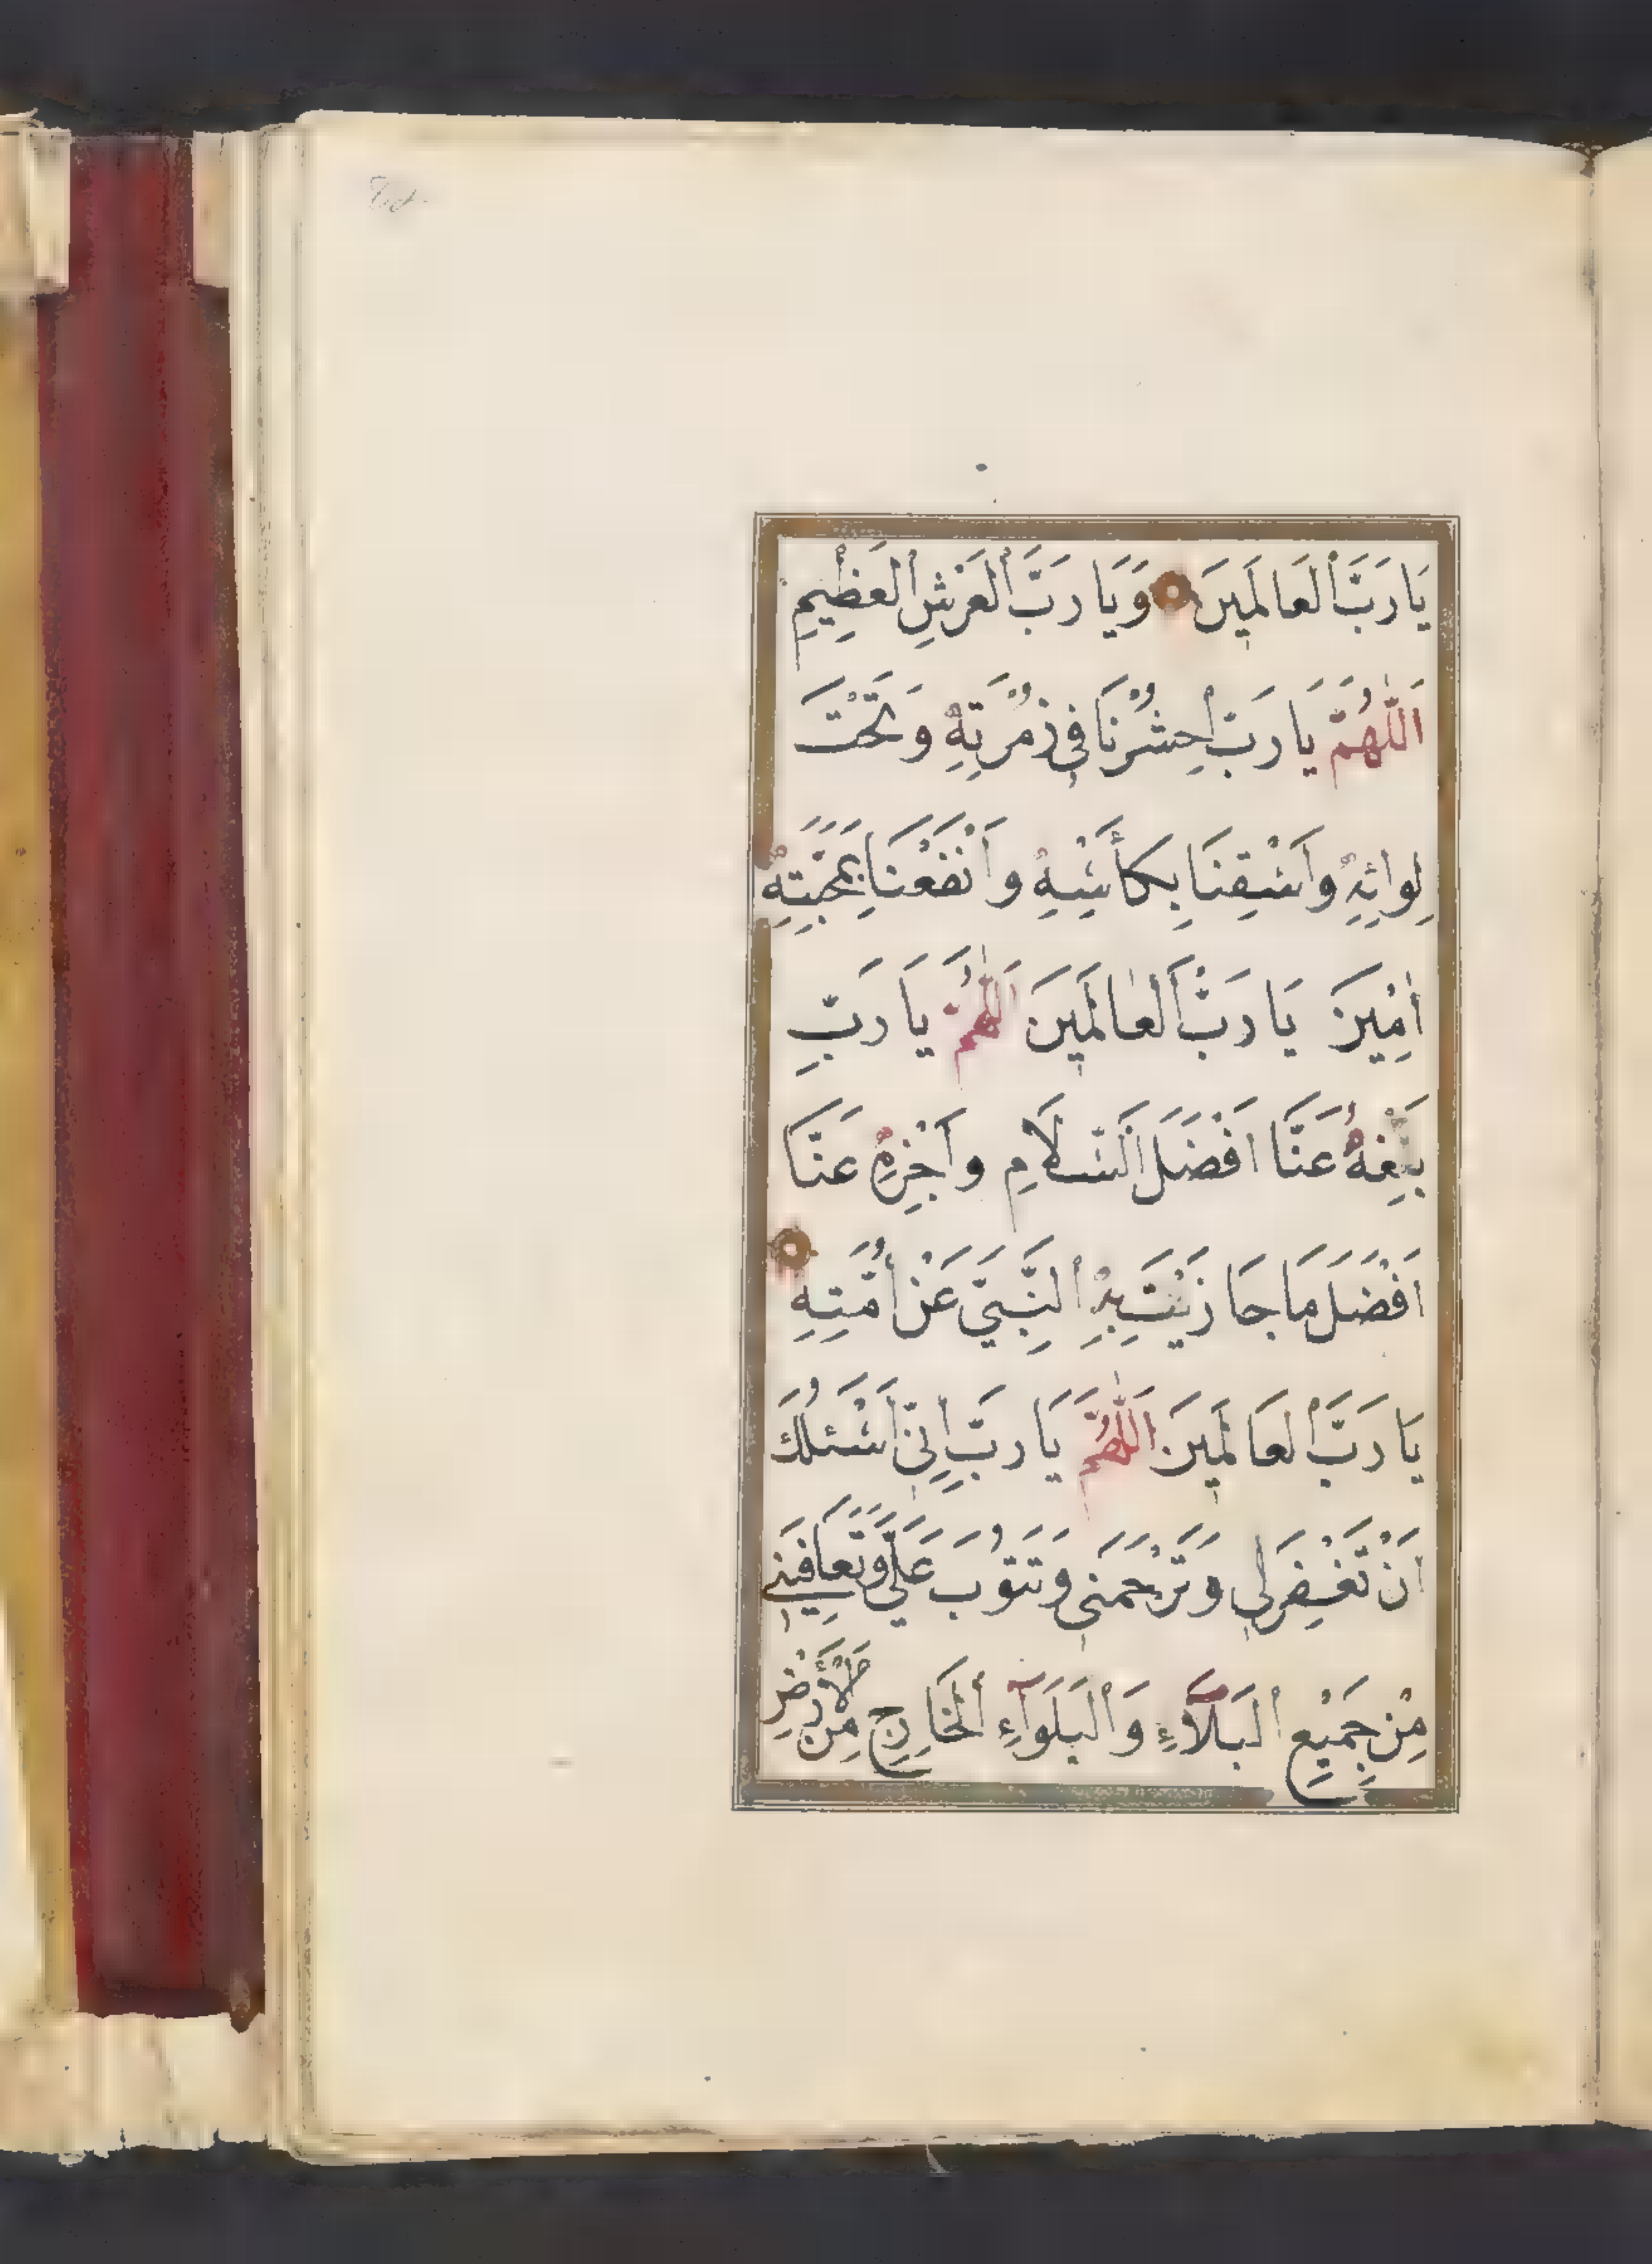 يَا رَبَّ الْعَالَمِينَ وَيَا رَبَّ الْعَرْشِ الْعَظِيمِ
اَللّٰهُمَّ يَا رَبِّ احْشُرْنَا فِي زُمْرَتِهِ وَتَحْتَ
لِوَائِهِ وَاَسْقِنَا بِكَأْسِهِ وَاَنْفَعْنَا بِمَحَبَّتِهِ
اٰمِينَ يَا رَبَّ الْعَالَمِينَ اَللّٰهُمَّ يَا رَبِّ
بَلِّغْهُ عَنَّا اَفْضَلَ السَّلَامِ وَاَجْزِهِ عَنَّا
اَفْضَلَ مَا جَازَيْتَ بِهِ النَّبِيَّ عَنْ اُمَّتِهِ
يَا رَبَّ الْعَالَمِينَ اَللّٰهُمَّ يَا رَبِّ اِنِّي اَسْئَلُكَ
اَنْ تَغْفِرَ لِي وَتَرْحَمَنِي وَتَتُوبَ عَلَيَّ وَتُعَافِيَنِي
مِنْ جَمِيعِ الْبَلَاءِ وَالْبَلَوَآءِ الْخَارِجِ مِنَ الْأَرْضِ